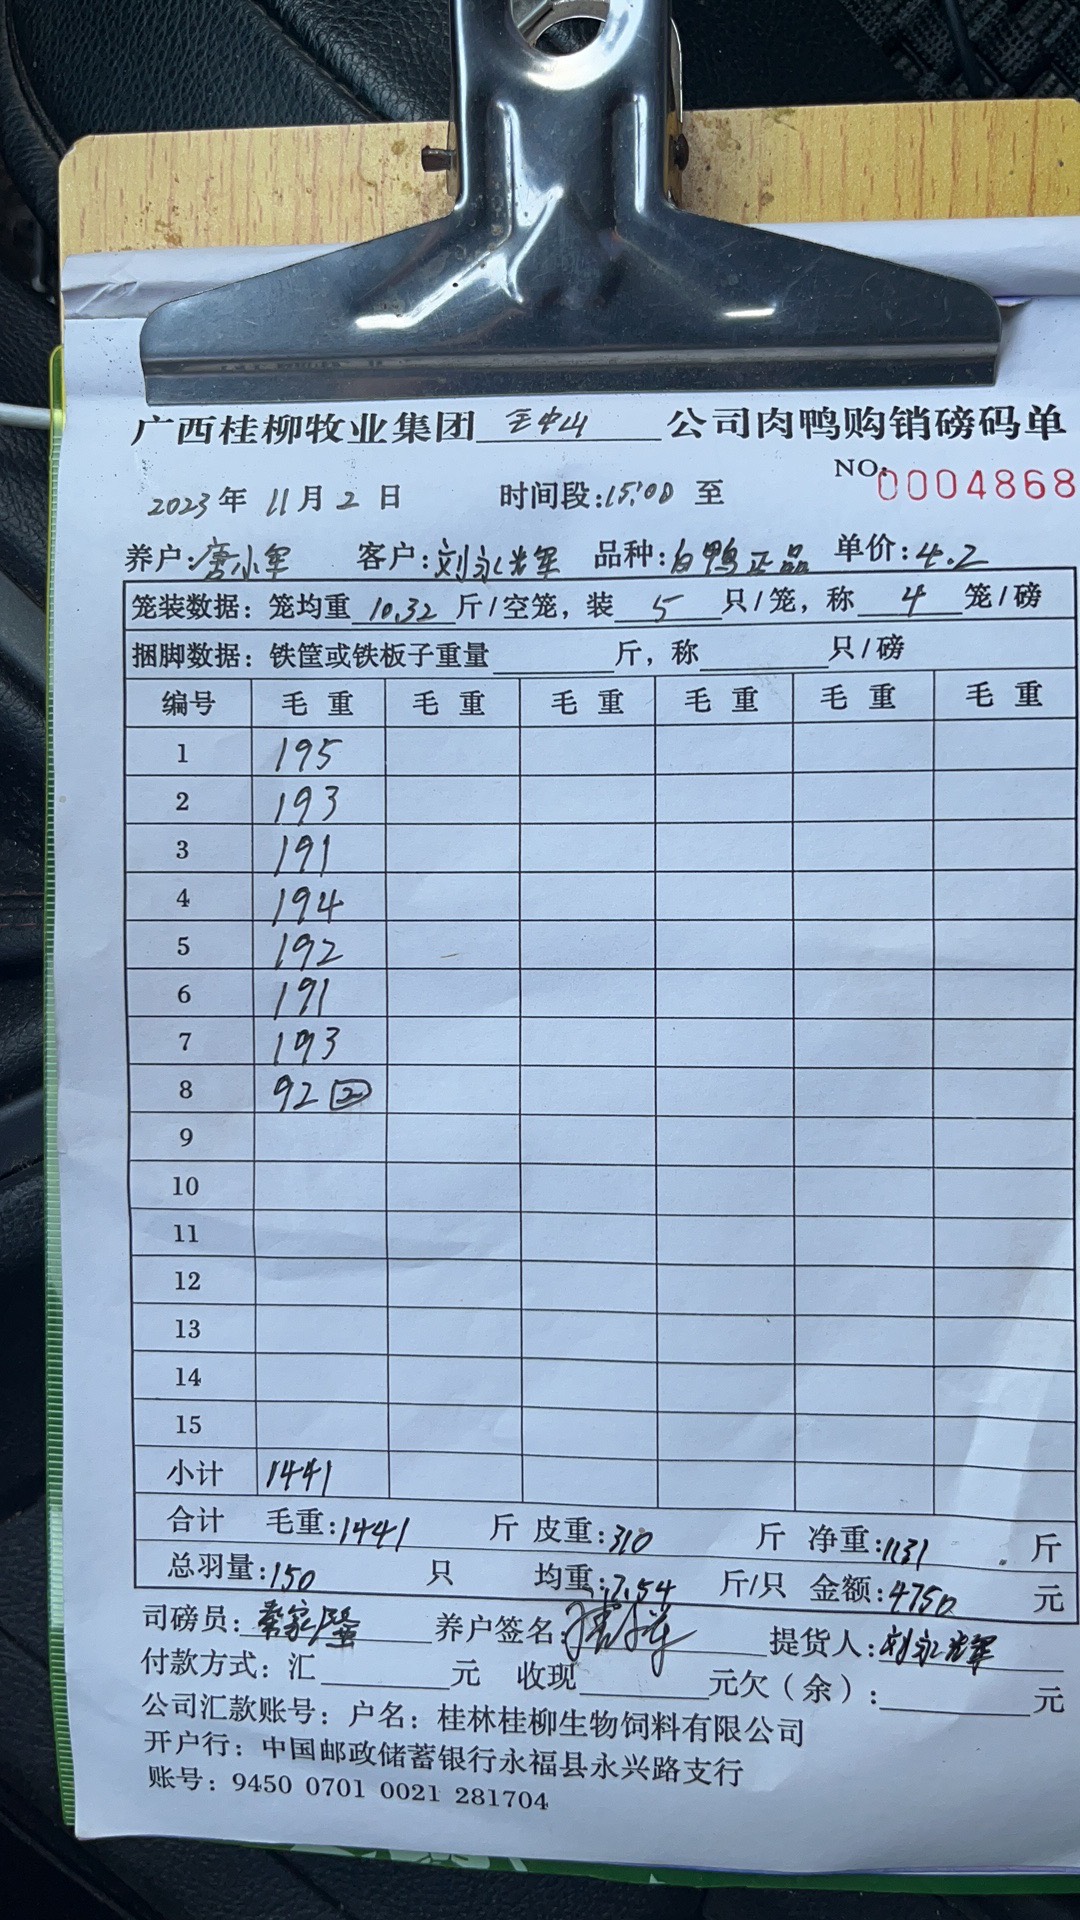 广西桂柳牧业集团 王中山 公司肉鸭购销磅码单
NO:0004868
2023年 11月 2 日 时间段:15:00 至
养户:唐小军 客户:刘永光军 品种:白鸭正品 单价:4.2
笼装数据:笼均重 10.32 斤/空笼,装 5 只/笼,称 4 笼/磅
捆脚数据:铁筐或铁板子重量 斤,称 只/磅
编号 毛重 毛重 毛重 毛重 毛重 毛重
1 195
2 193
3 191
4 194
5 192
6 191
7 193
8 92 ②
9
10
11
12
13
14
15
小计 1441
合计 毛重:1441 斤 皮重:310 斤 净重:1131 斤
总羽量:150 只 均重:7.54 斤/只 金额:4750 元
司磅员: 养户签名: 提货人:刘永光军
付款方式:汇 元 收现 元欠(余): 元
公司汇款账号:户名:桂林桂柳生物饲料有限公司
开户行:中国邮政储蓄银行永福县永兴路支行
账号:9450 0701 0021 281704